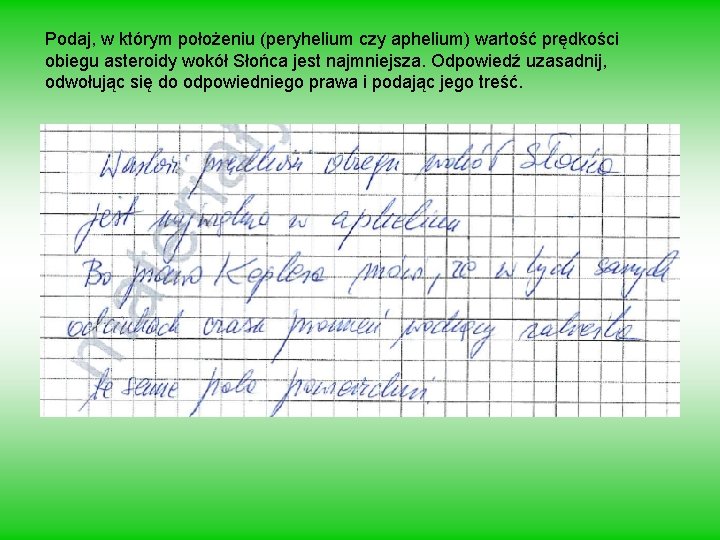 Podaj, w którym położeniu (peryhelium czy aphelium) wartość prędkości
obiegu asteroidy wokół Słońca jest najmniejsza. Odpowiedź uzasadnij,
odwołując się do odpowiedniego prawa i podając jego treść.
Wartość prędkości obiegu wokół Słońca
jest w aphelium.
Bo prawo Keplera mówi, że w tych samych
odcinkach czasu promień wodzący zakreśla
te same pola powierzchni.